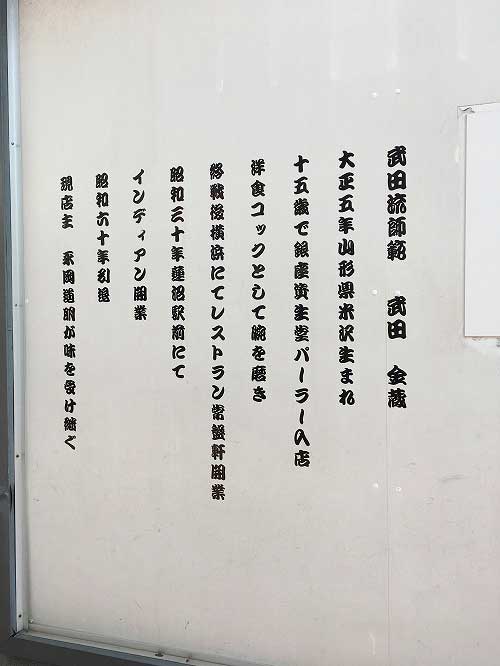 武田流師範 武田 金蔵
大正五年山形県米沢生まれ
十五歳で銀座資生堂パーラー入店
洋食コックとして腕を磨き
終戦後横浜にてレストラン常盤軒開業
昭和三十年蓮沼駅前にて
インディアン開業
昭和六十年引退
現店主 永岡道明が味を受け継ぐ